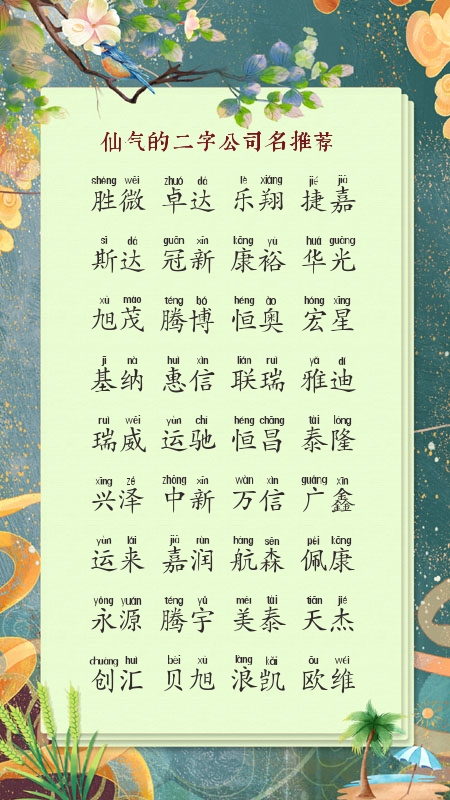 仙气的二字公司名推荐
shèng wēi zhuó dá lè xiáng jié jiā
胜微 卓达 乐翔 捷嘉
sī dá guān xīn kāng yù huá guāng
斯达 冠新 康裕 华光
xù mào téng bó héng ào hóng xīng
旭茂 腾博 恒奥 宏星
jī nà huì xìn lián ruì yǎ dí
基纳 惠信 联瑞 雅迪
ruì wēi yùn chí héng chāng tài lóng
瑞威 运驰 恒昌 泰隆
xīng zé zhōng xīn wàn xìn guǎng xīn
兴泽 中新 万信 广鑫
yùn lái jiā rùn háng sēn pèi kāng
运来 嘉润 航森 佩康
yǒng yuán téng yǔ měi tài tiān jié
永源 腾宇 美泰 天杰
chuàng huì bèi xù làng kǎi ōu wéi
创汇 贝旭 浪凯 欧维